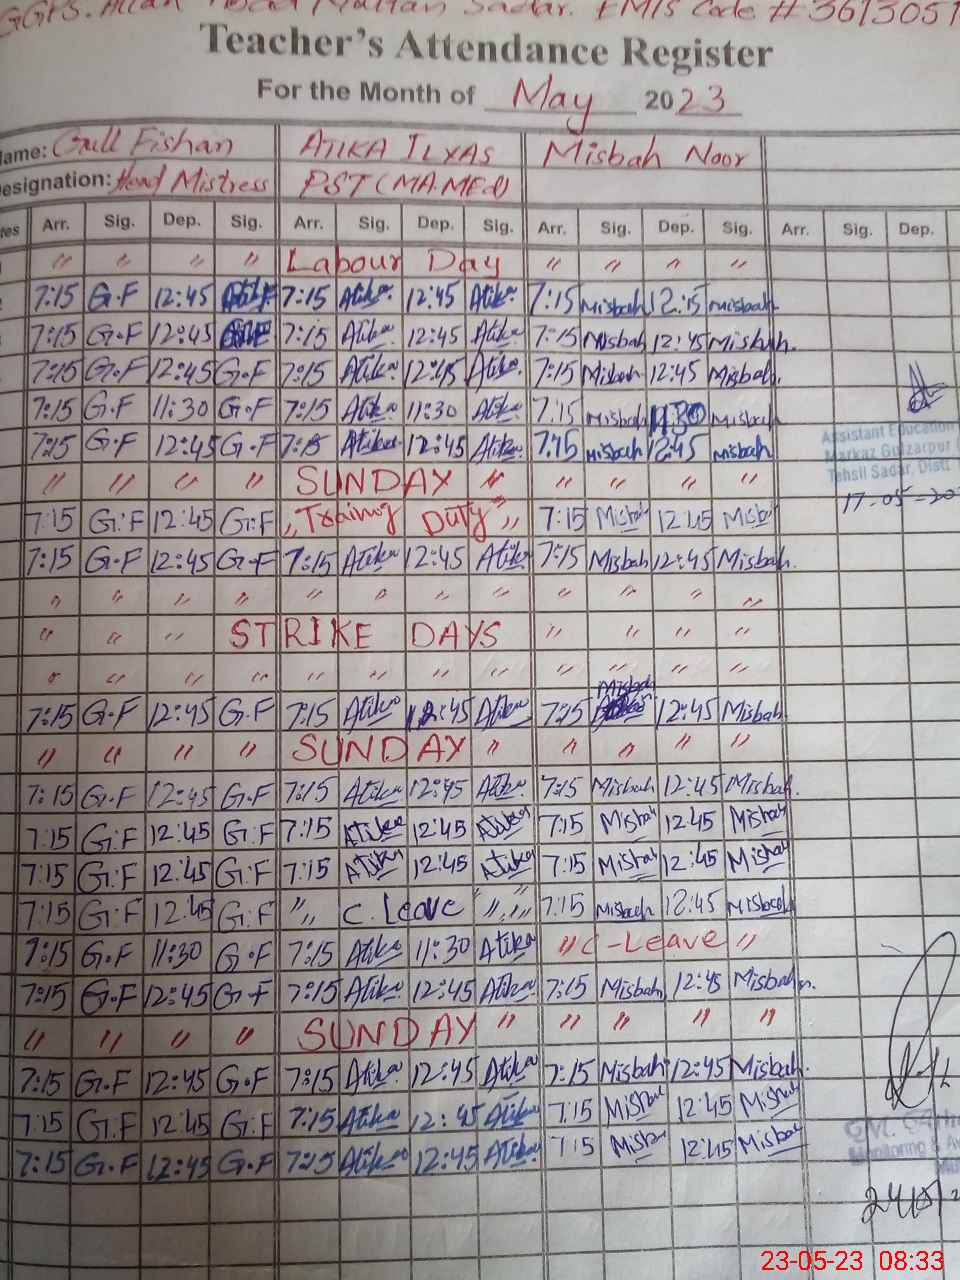 Sadar. EMIS Code # 3613051
Teacher's Attendance Register
For the Month of May 2023
Name: Gull Fishan ATIKA ILYAS Misbah Noor
Designation: Head Mistress PST (MA.MEd)
Arr. Sig. Dep. Sig. Arr. Sig. Dep. Sig. Arr. Sig. Dep. Sig. Arr. Sig. Dep.
" " " " Labour Day " " " "
7:15 G.F 12:45 7:15 Atika 12:45 Atika 7:15 Misbah 12:15 misbah
7:15 G.F 12:45 7:15 Atika 12:45 Atika 7:15 Misbah 12:45 Misbah.
7:15 G.F 12:45 G.F 7:15 Atika 12:45 Atika 7:15 Misbah 12:45 Misbah.
7:15 G.F 11:30 G.F 7:15 Atika 11:30 Atika 7:15 Misbah 11:30 Misbah
7:15 G.F 12:45 G.F 7:15 Atika 12:45 Atika 7:15 misbah 12:45 misbah
Assistant Education
Markaz Gulzarpur
Tehsil Sadar, Distt.
" " " " SUNDAY " " " " "
17-05-20
7:15 G.F 12:45 G.F "Training Duty" 7:15 Misbah 12:45 Misbah
7:15 G.F 12:45 G.F 7:15 Atika 12:45 Atika 7:15 Misbah 12:45 Misbah.
" " " " " " " " " " " "
" " " STRIKE DAYS " " " "
" " " " " " " " " " " "
7:15 G.F 12:45 G.F 7:15 Atika 12:45 Atika 7:15 Misbah 12:45 Misbah
" " " " SUNDAY " " " " "
7:15 G.F 12:45 G.F 7:15 Atika 12:45 Atika 7:15 Misbah 12:45 Misbah.
7:15 G.F 12:45 G.F 7:15 Atika 12:45 Atika 7:15 Misbah 12:45 Misbah
7:15 G.F 12:45 G.F 7:15 Atika 12:45 Atika 7:15 Misbah 12:45 Misbah
7:15 G.F 12:45 G.F " C. Leave " " 7:15 Misbah 12:45 Misbah
7:15 G.F 11:30 G.F 7:15 Atika 11:30 Atika "C-Leave"
7:15 G.F 12:45 G.F 7:15 Atika 12:45 Atika 7:15 Misbah 12:45 Misbah
" " " " SUNDAY " " " " "
7:15 G.F 12:45 G.F 7:15 Atika 12:45 Atika 7:15 Misbah 12:45 Misbah.
7:15 G.F 12:45 G.F 7:15 Atika 12:45 Atika 7:15 Misbah 12:45 Misbah
7:15 G.F 12:45 G.F 7:15 Atika 12:45 Atika 7:15 Misbah 12:45 Misbah
23-05-23 08:33